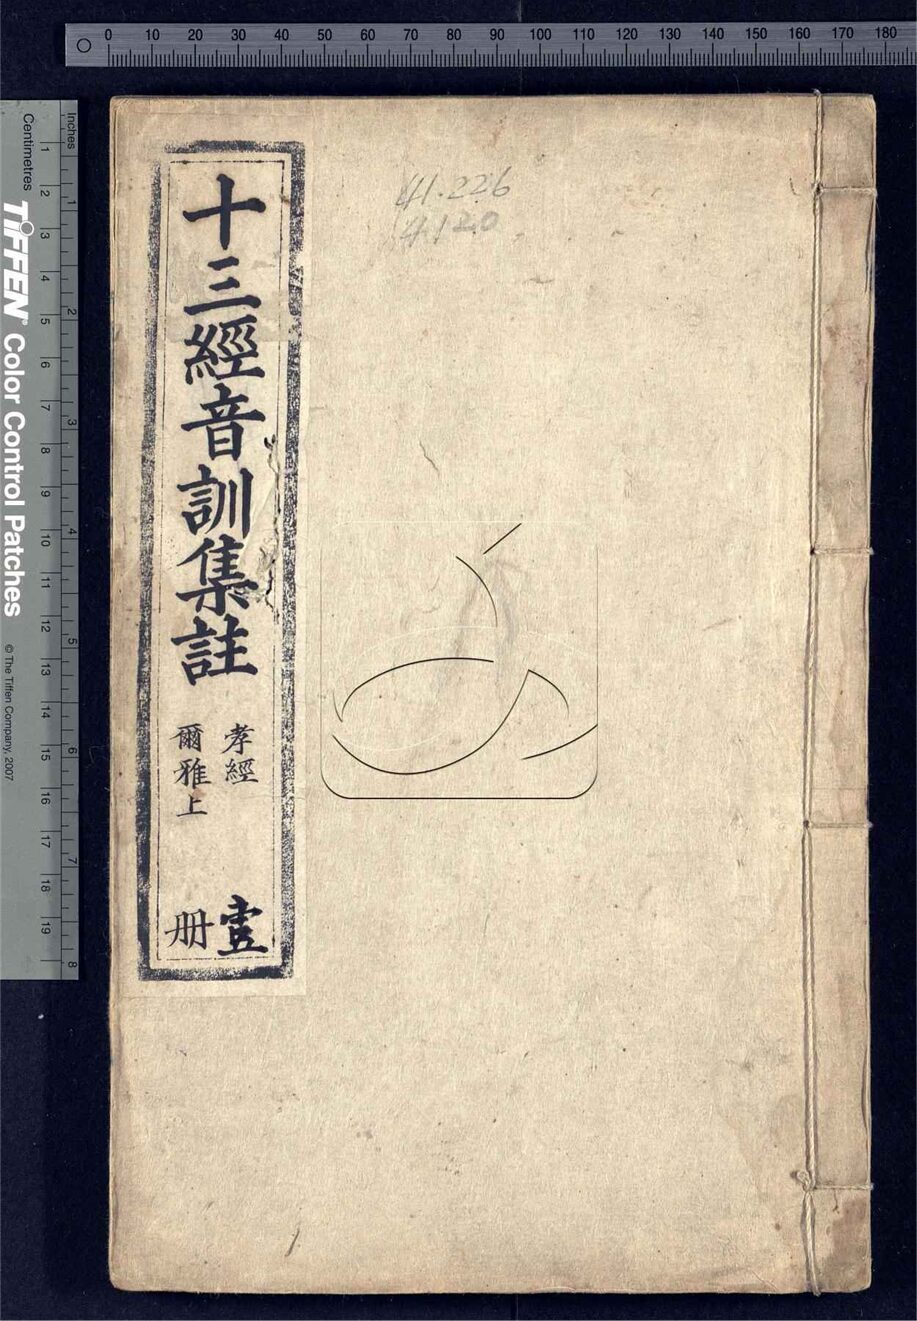 0 10 20 30 40 50 60 70 80 90 100 110 120 130 140 150 160 170 180
Inches
Centimetres
1 2 3 4 5 6 7 8 9 10 11 12 13 14 15 16 17 18 19
1 2 3 4 5 6 7 8
TIFFEN® Color Control Patches
© The Tiffen Company, 2007
41.226
4120
十三經音訓集註
孝經
爾雅上
壹
册